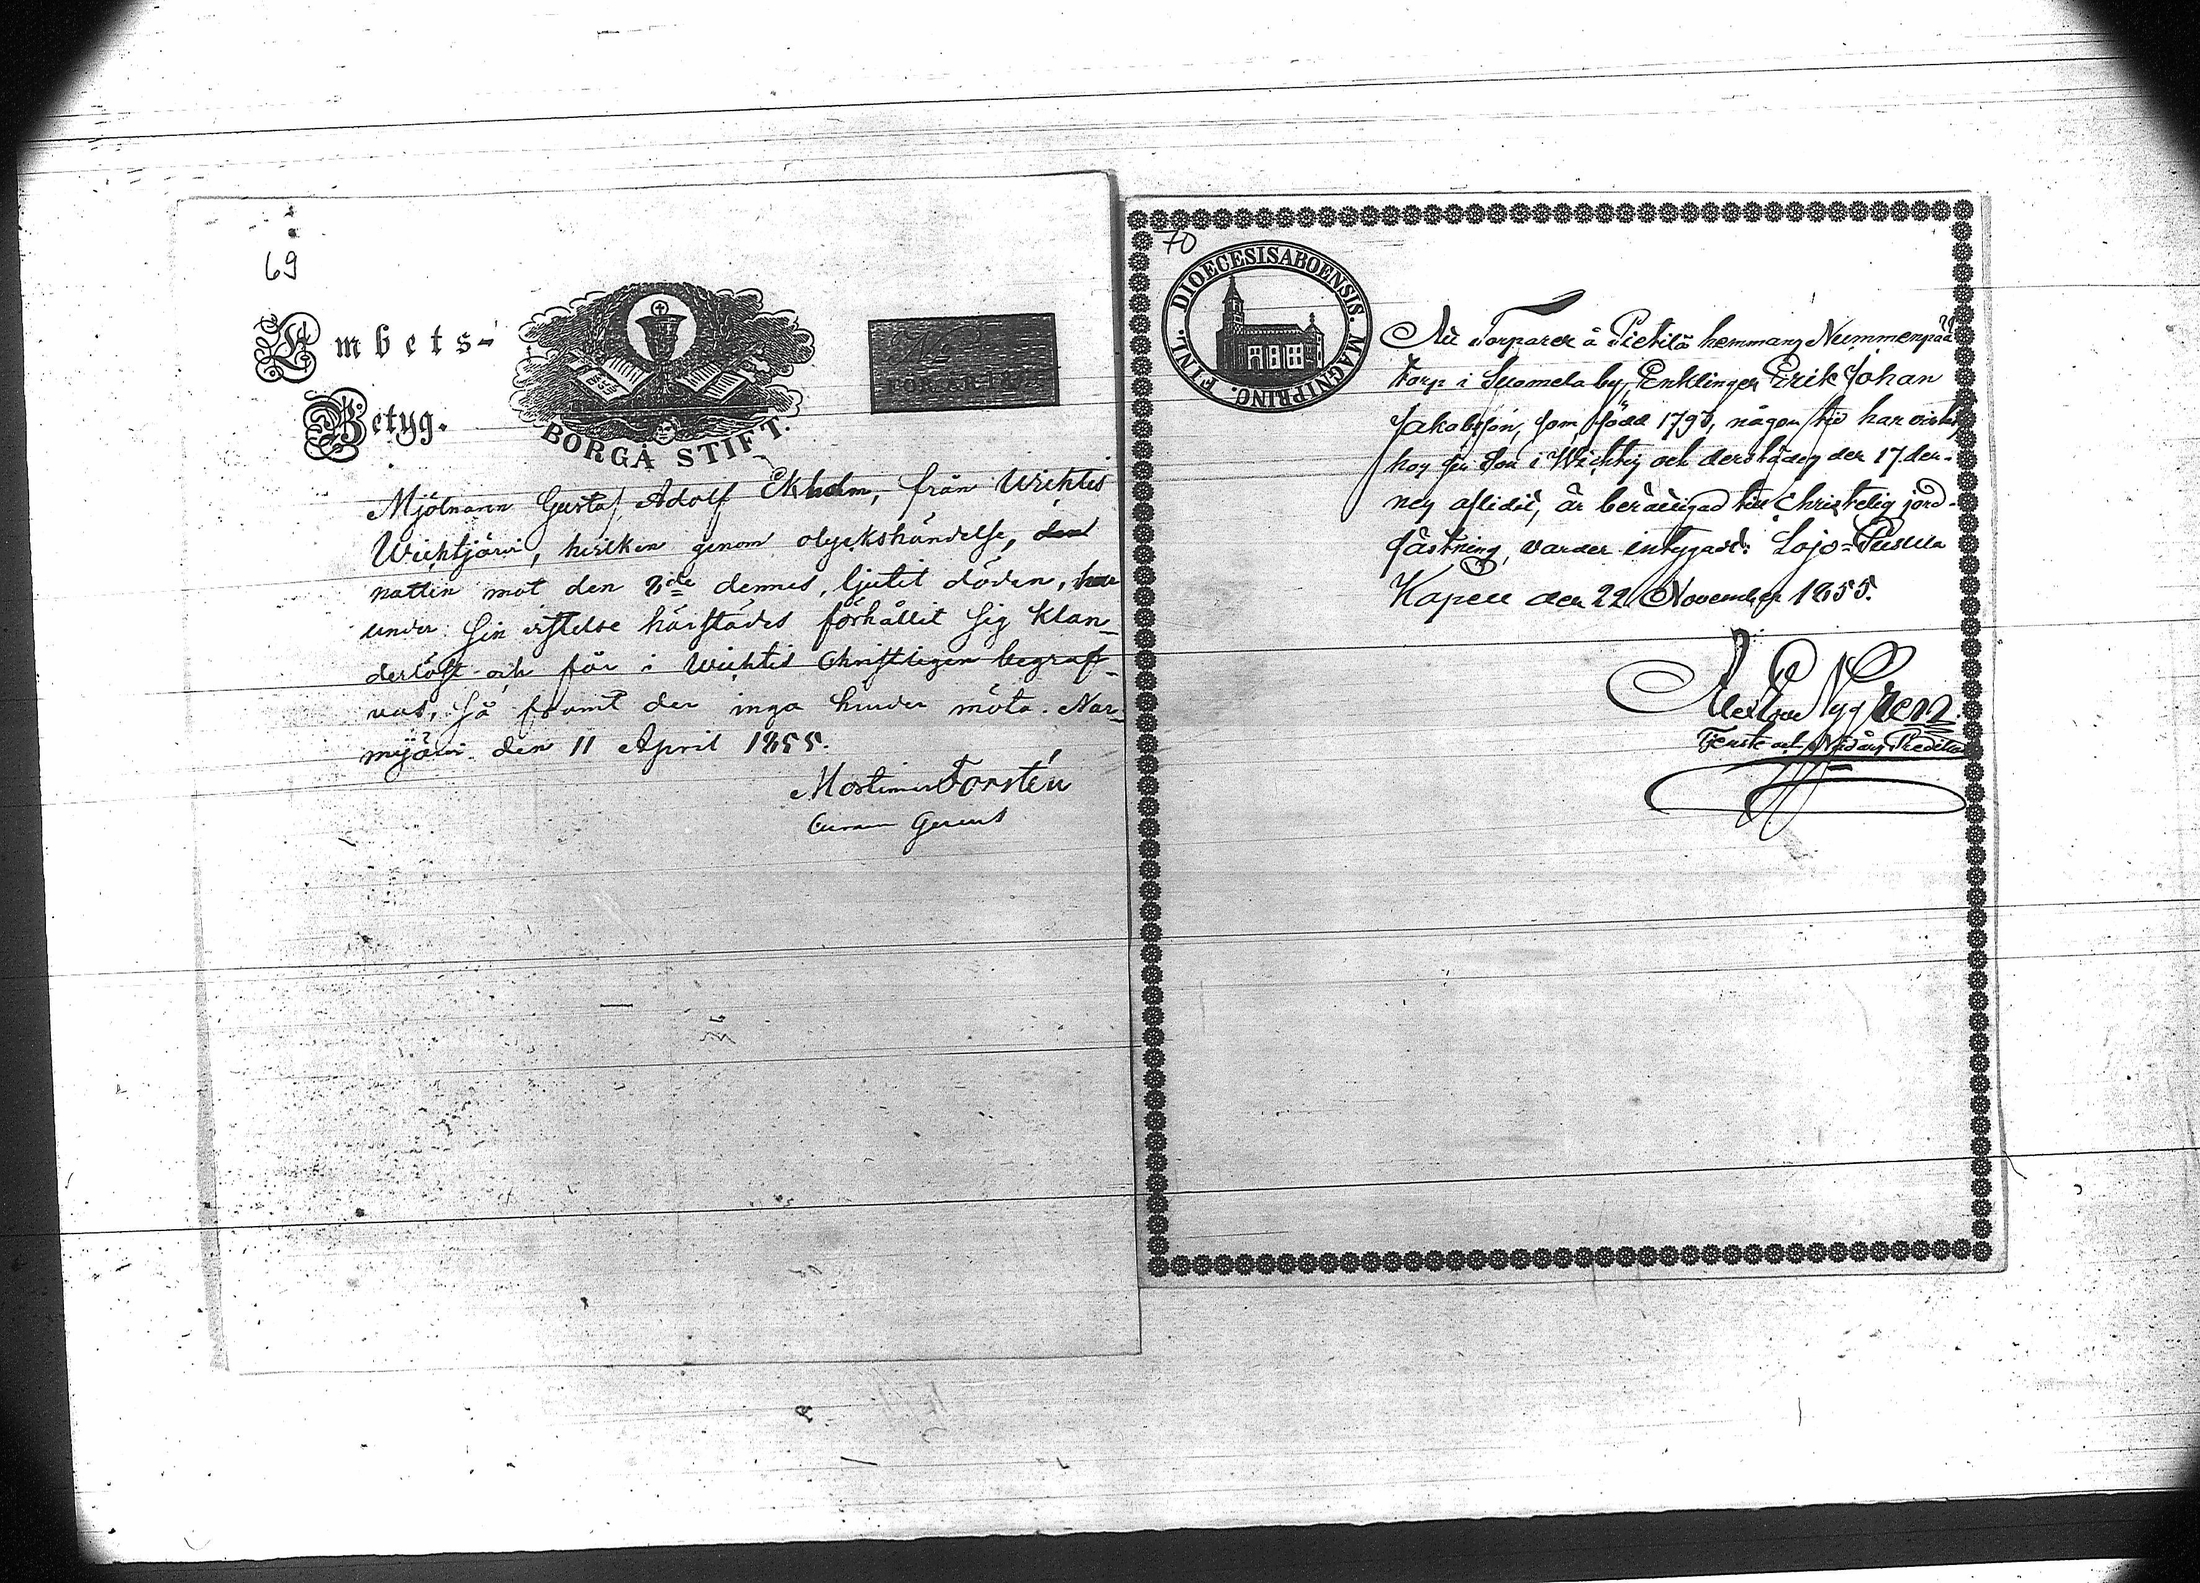 69
Embets-
Betyg.
BORGÅ STIFT.
FÖR ÅR 18
Mjölnaren Gustaf Adolf Ekholm, från Wichtis
Wichtjärvi, hvilken genom olyckshändelse, den
natten mot den 8de dennes, ljutit döden, har
under sin vistelse härstädes förhållit sig klan-
derlöst och får i Wichtis Christligen begraf-
vas, så framt der inga hinder möta. Nur-
mijärvi den 11 April 1855.
Mortimer Forstén
Curam Gerens
70
DIOECESIS ABOENSIS. MAGNI PRINC. FINL.
Att Torparen å Pietilä hemmans Nummenpää
Torp i Suomela by, Enklingen Erik Johan
Jakobsson, som, född 1793, någon tid har vistats
hos sin Son i Wichtis och derstädes den 17 den-
nes aflidit, är berättigad till Christelig jord-
fästning, varder intygadt: Lojo-Pusula
Kapell den 22 November 1855.
Nygren
Tjenste och Nådårs Predikant